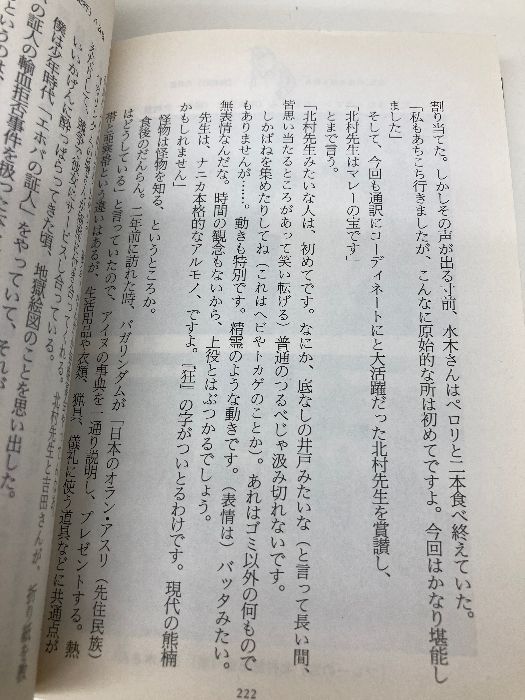 割り当てた。しかしその声が出る寸前、水木さんはペロリと二本食べ終えていた。
「私もあちこち行きましたが、こんなに原始的な所は初めてですよ。今回はかなり堪能し
ました」
そして、今回も通訳にコーディネートにと大活躍だった北村先生を賞讃し、
「北村先生はマレーの宝です」
とまで言う。
「北村先生みたいな人は、初めてです。なにか、底なしの井戸みたいな（と言って長い間、
皆思い当たるところがあって笑い転げる）普通のつるべじゃ汲み切れないです。
しかばねを集めたりしてね（これはヘビやトカゲのことか）。あれはゴミ以外の何もので
もありませんが……。動きも特別です。精霊のような動きです。（表情は）バッタみたい。
無表情なんだな。時間の観念もないから、上役とはぶつかるでしょう。
先生は、ナニカ本格的なアルモノ、ですよ。『狂』の字がついとるわけです。現代の熊楠
かもしれません」
怪物は怪物を知る、というところか。
食後のだんらん。二年前に訪れた時、バガリンダムが「日本のオラン・アスリ（先住民族）
はどうしている」と言っていたので、アイヌの事典を一通り説明し、プレゼントする。熱
帯と寒帯という違いはあるが、生活用品や衣類、猟具、儀礼に使う道具などに共通点が
北村先生と吉田さんが、折り紙を
いいかげんに酔っぱらってきた頃、地獄絵図のことを思い出した。
僕は少年時代「エホバの証人」をやっていて、それが
の証人の輸血拒否事件を扱った
というのは
222